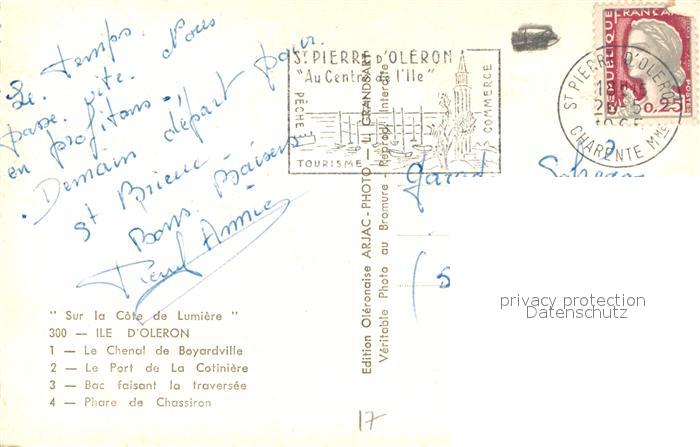 Le temps
passe vite. Nous
en profitons.
Demain départ pour
St Brieuc
Bons Baisers
Annie
ST PIERRE D'OLÉRON
"Au Centre de l'Ile"
PÊCHE
COMMERCE
TOURISME
REPUBLIQUE FRANÇAISE
POSTES
0,25
ST PIERRE D'OLERON
CHARENTE Mme
Edition Oléronaise ARJAC-PHOTO — LE GRANDSART
Véritable Photo au Bromure - Reprod. Interdite
privacy protection
Datenschutz
" Sur la Côte de Lumière "
300 — ILE D'OLERON
1 — Le Chenal de Boyardville
2 — Le Port de La Cotinière
3 — Bac faisant la traversée
4 — Phare de Chassiron
17